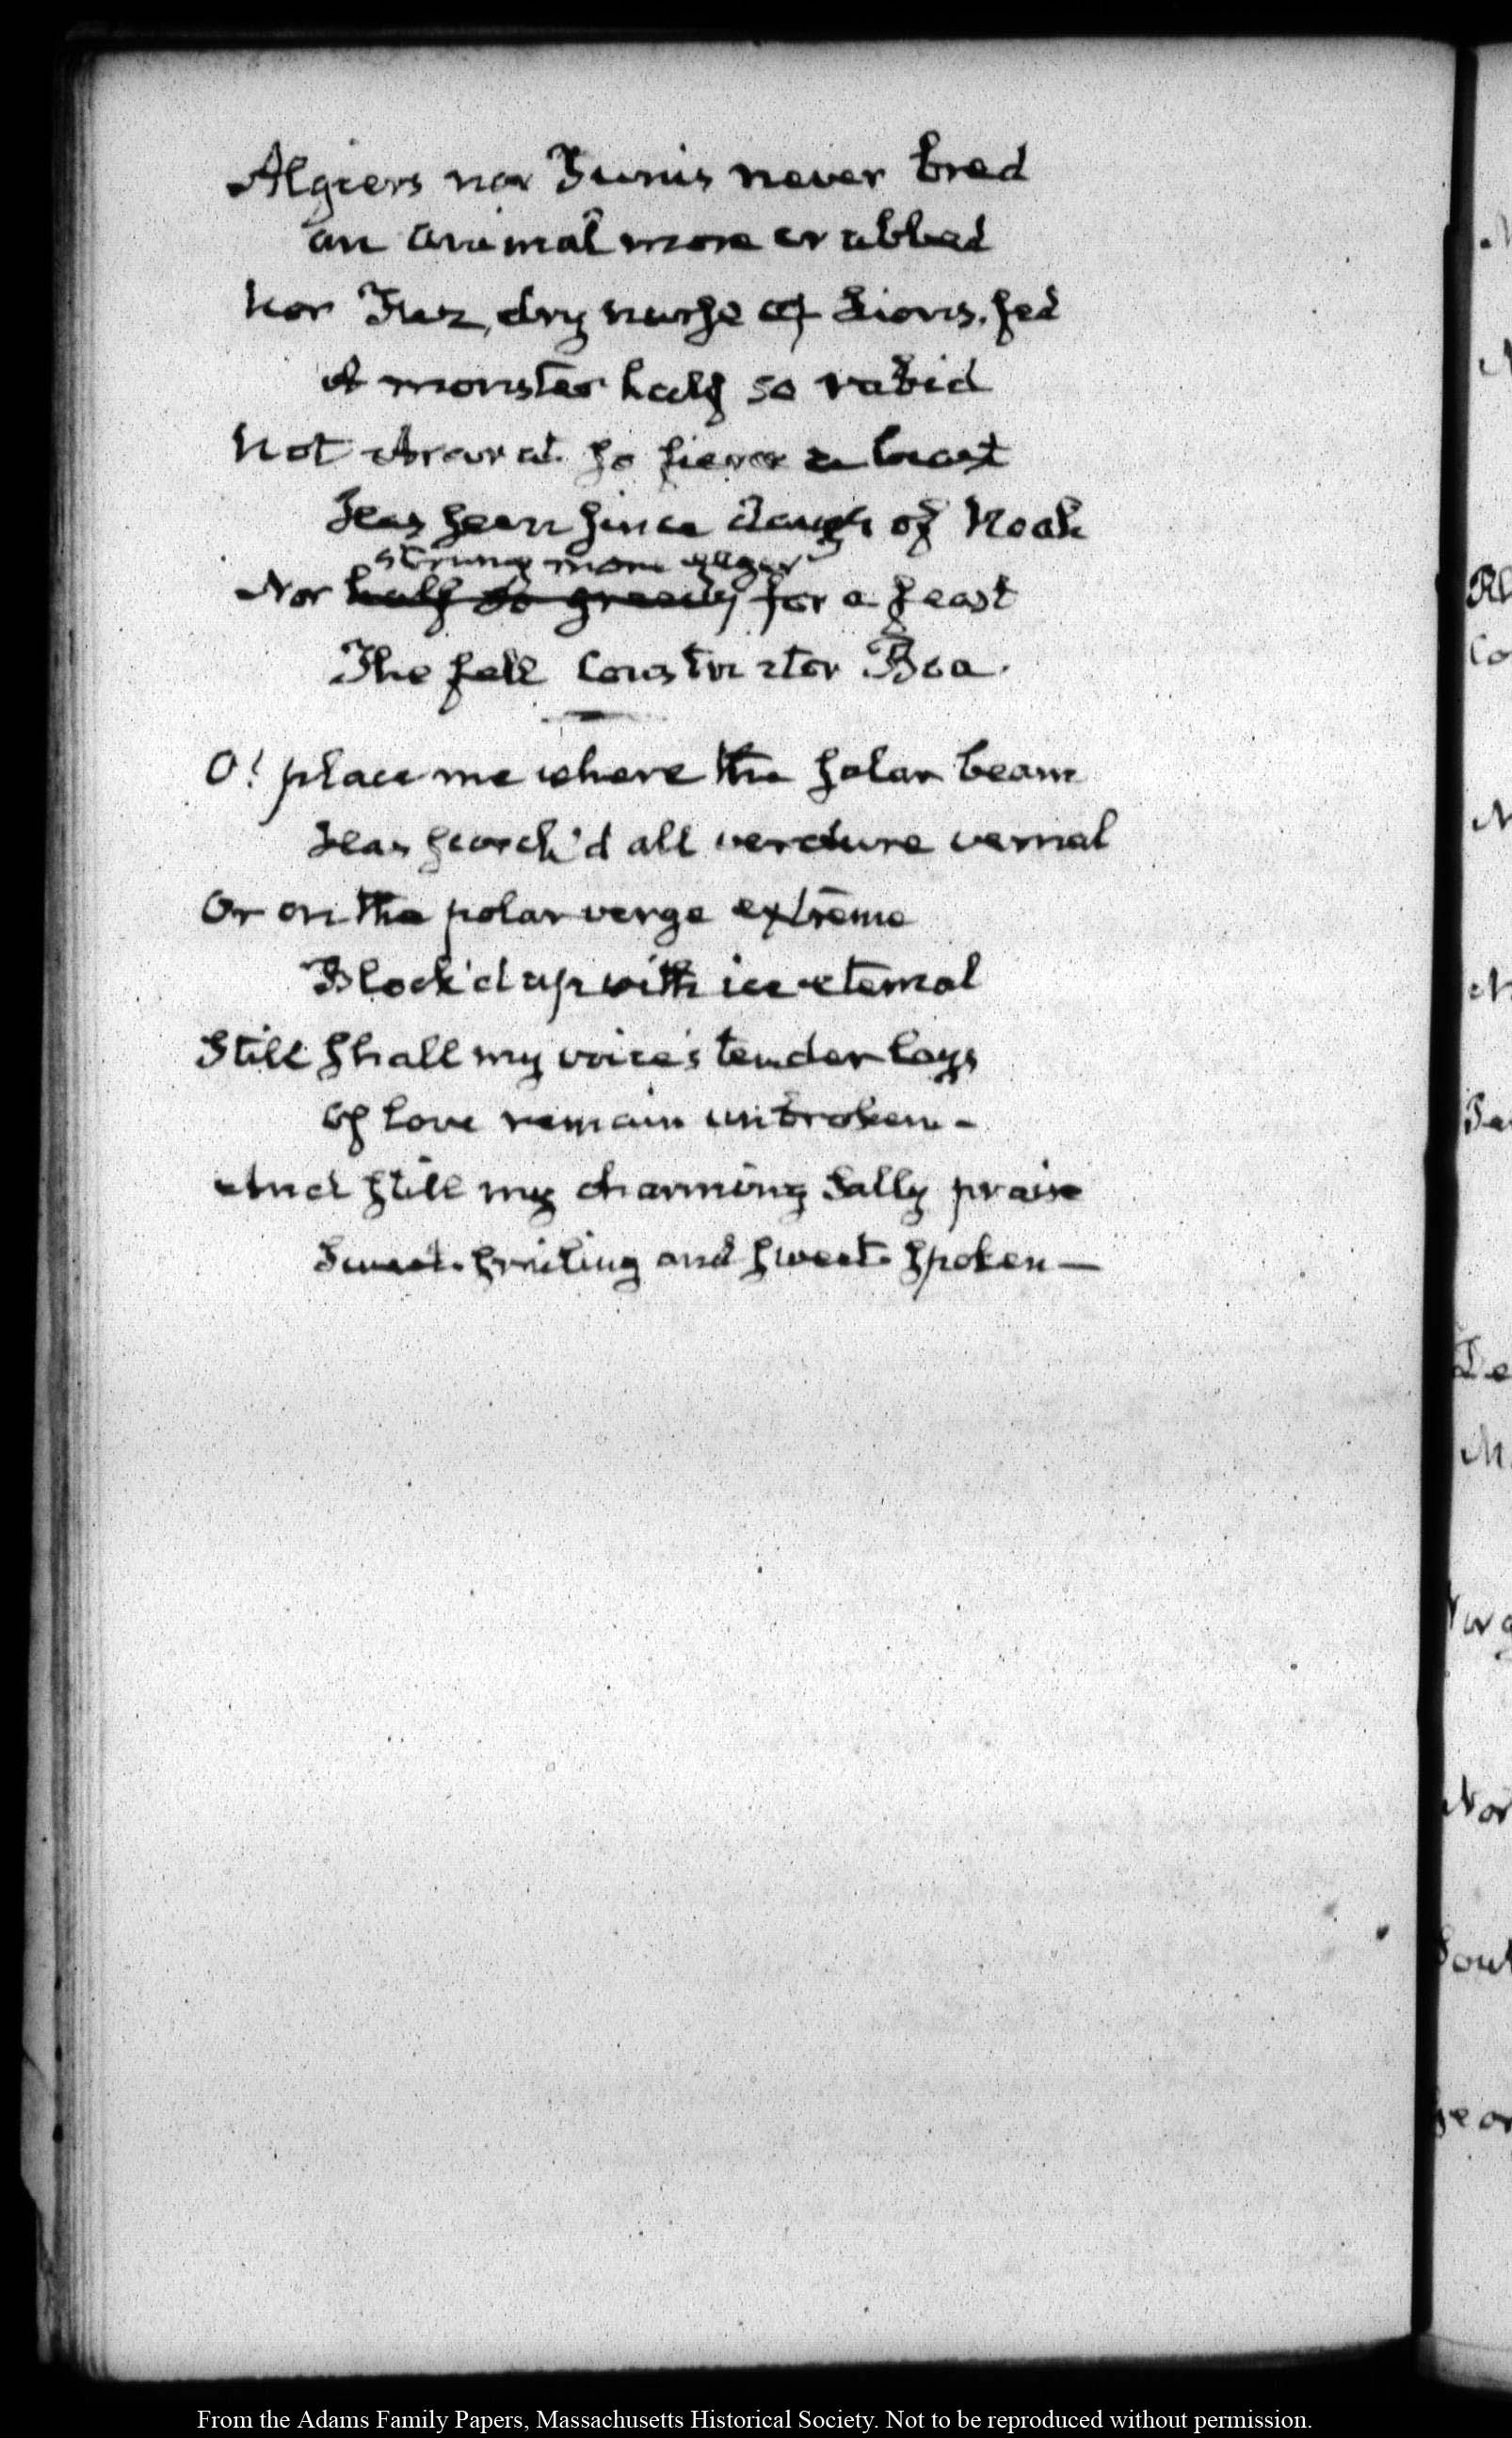 Algiers nor Tunis never bred
an animal more crabbed
Nor Fez, dry nurse of Lions, fed
A monster half so rabid
Not Ararat so fierce a beast
Has seen since days of Noah
strung more eager
Nor half so greedy for a feast
The fell Constrictor Boa.
O! place me where the solar beam
Has scorch'd all verdure vernal
Or on the polar verge extreme
Block'd up with ice eternal
Still shall my voice's tender lays
Of love remain unbroken—
And still my charming Sally praise
Sweet smiling and sweet spoken—
From the Adams Family Papers, Massachusetts Historical Society. Not to be reproduced without permission.